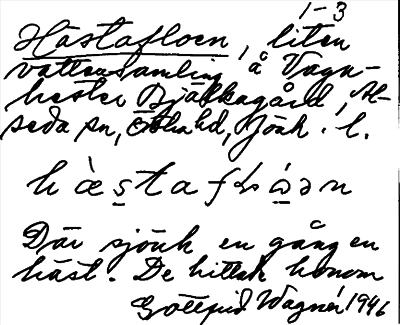 1-3
Hästafloen, liten
vattensamling å Vagn-
hester Bjälkagård, Al-
seda sn, Östra hd, Jönk. l.
hὰs̲tafḷọ́ən
Där sjönk en gång en
häst. De hittade honom
Gottfrid Wagnér 1946